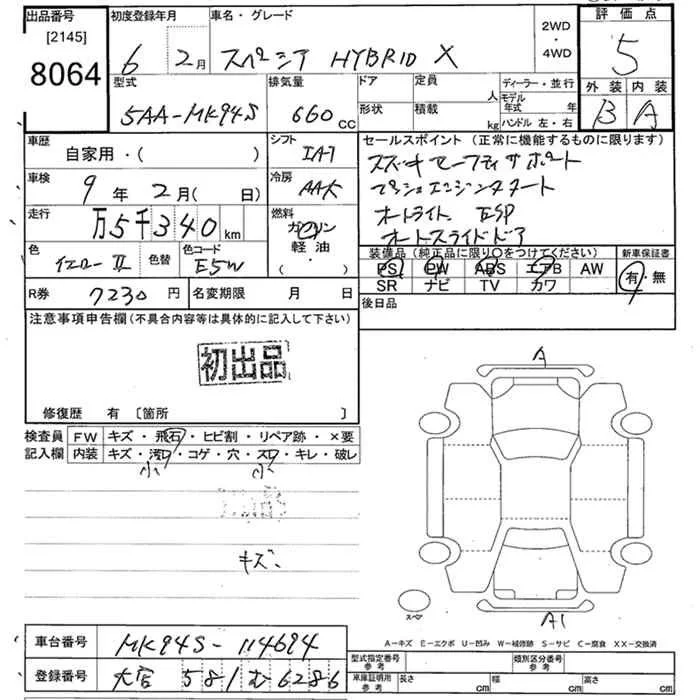 出品番号 初度登録年月 車名・グレード 2WD・4WD 評価点
[2145]
8064 6 2月 スペシア HYBRID X 5
型式 排気量 ドア 定員 人 ディーラー・並行 外装 内装
5AA-MK94S 660cc 形状 積載 kg モデル年式 年 B A
ハンドル 左・右
車歴 自家用・( ) シフト IAT セールスポイント(正常に機能するものに限ります)
車検 9年2月(日) 冷房 AAC スズキセーフティサポート
プッシュエンジンスタート
走行 万5千340km 燃料 ガソリン 軽油・( ) オートライト ESP
オートスライドドア
色 イエローII 色替 色コード E5W 装備品(純正品に限り○をつけてください) 新車保証書
PS PW ABS エアB AW 有・無
SR ナビ TV カワ
R券 7230円 名変期限 月 日 後日品
注意事項申告欄(不具合内容等は具体的に記入して下さい)
初出品
修復歴 有 [箇所 ]
A
検査員 FW キズ・飛石・ヒビ割・リペア跡・×要
記入欄 内装 キズ・汚れ・コゲ・穴・スレ・キレ・破レ
小 小
キズ
スペア
A1
A-キズ E-エクボ U-凹み W-補修跡 S-サビ C-腐食 XX-交換済
車台番号 MK94S-114694
型式指定番号 参考 類別区分番号 参考
登録番号 大宮 581 む 6286
車庫証明用 参考 長さ cm 幅 cm 高さ cm